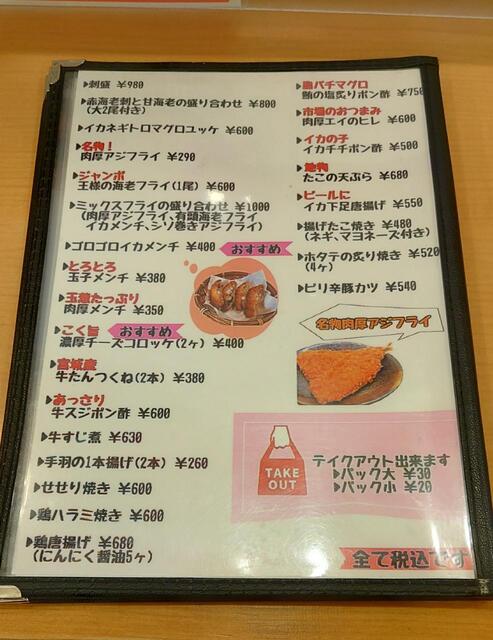 ▶刺盛 ¥980
▶赤海老刺と甘海老の盛り合わせ ¥800
(大2尾付き)
▶イカネギトロマグロユッケ ¥600
▶名物!
肉厚アジフライ ¥290
▶ジャンボ
王様の海老フライ(1尾) ¥600
▶ミックスフライの盛り合わせ ¥1000
(肉厚アジフライ,有頭海老フライ
イカメンチ,シソ巻きアジフライ)
▶ゴロゴロイカメンチ ¥400 おすすめ
▶とろとろ
玉子メンチ ¥380
▶玉葱たっぷり
肉厚メンチ ¥350
▶こく旨 おすすめ
濃厚チーズコロッケ(2ヶ) ¥400
▶宮城産
牛たんつくね(2本) ¥380
▶あっさり
牛スジポン酢 ¥600
▶牛すじ煮 ¥630
▶手羽の1本揚げ(2本) ¥260
▶せせり焼き ¥600
▶鶏ハラミ焼き ¥600
▶鶏唐揚げ ¥680
(にんにく醤油5ヶ)
▶脂バチマグロ
鮪の塩炙りポン酢 ¥750
▶市場のおつまみ
肉厚エイのヒレ ¥600
▶イカの子
イカチチポン酢 ¥500
▶地物
たこの天ぷら ¥680
▶ビールに
イカ下足唐揚げ ¥550
▶揚げたこ焼き ¥480
(ネギ,マヨネーズ付き)
▶ホタテの炙り焼き ¥520
(4ヶ)
▶ピリ辛豚カツ ¥540
名物肉厚アジフライ
TAKE
OUT
テイクアウト出来ます
▶パック大 ¥30
▶パック小 ¥20
全て税込です